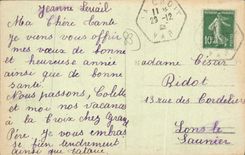 Jeanne
Ma Chère Tante
Je viens vous offrir
mes vœux de bonne
et heureuse année
ainsi que de bonne
santé.
Nous passons, Colette
et moi nos vacances
à la Croix chez
Père. Je vous embrasse
bien tendrement
ainsi que
11
29-12
VAR
10
Madame César
Ridot
13 rue des Cordeliers
Lons le
Saunier